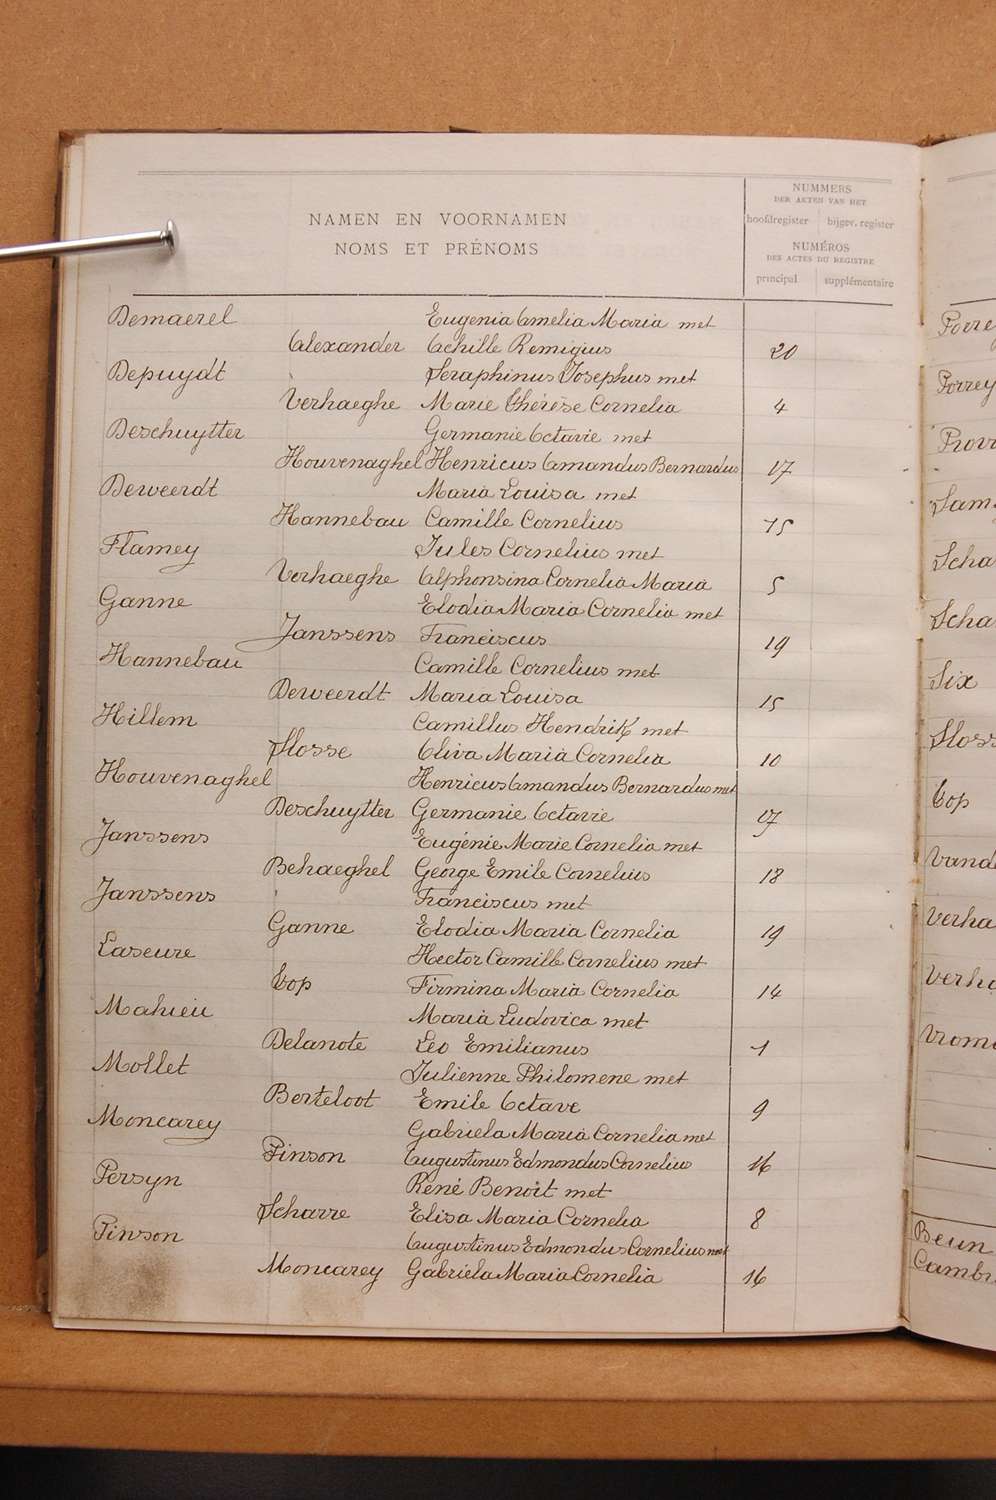 NAMEN EN VOORNAMEN
NOMS ET PRÉNOMS
NUMMERS
DER ACTEN VAN HET
hoofdregister bijgev. register
NUMÉROS
DES ACTES DU REGISTRE
principal supplémentaire
Demaerel Eugenia Amelia Maria met
Alexander Achille Remigius 20
Depuydt Seraphinus Josephus met
Verhaeghe Marie Thérèse Cornelia 4
Deschuytter Germanie Octavie met
Houvenaghel Henricus Amandus Bernardus 17
Deweerdt Maria Louisa met
Hannebau Camille Cornelius 15
Flamey Jules Cornelius met
Verhaeghe Alphonsina Cornelia Maria 5
Ganne Elodia Maria Cornelia met
Janssens Franciscus 19
Hannebau Camille Cornelius met
Deweerdt Maria Louisa 15
Hillem Camillus Hendrik met
Slosse Oliva Maria Cornelia 10
Houvenaghel Henricus Amandus Bernardus met
Deschuytter Germanie Octavie 17
Janssens Eugénie Marie Cornelia met
Behaeghel George Emile Cornelius 18
Janssens Franciscus met
Ganne Elodia Maria Cornelia 19
Laseure Hector Camille Cornelius met
Top Firmina Maria Cornelia 14
Mahieu Maria Ludovica met
Delanote Leo Emilianus 1
Mollet Julienne Philomene met
Berteloot Emile Octave 9
Moncarey Gabriela Maria Cornelia met
Pinson Augustinus Edmondus Cornelius 16
Persyn René Benoit met
Scharre Elisa Maria Cornelia 8
Pinson Augustinus Edmondus Cornelius met
Moncarey Gabriela Maria Cornelia 16
Porrey
Six
Top
Beun